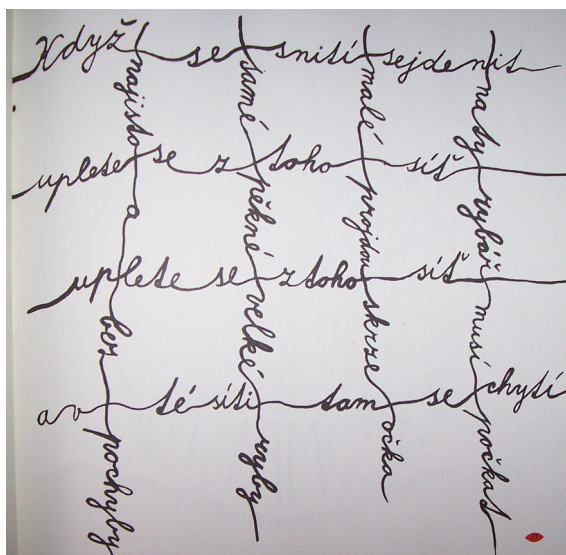 Když se s nití sejde nit
uplete se z toho síť
uplete se z toho síť
a v té síti tam se chytí
najisto a bez pochyby
samé pěkné velké ryby
malé projdou skrze očka
na ty rybář musí počkat